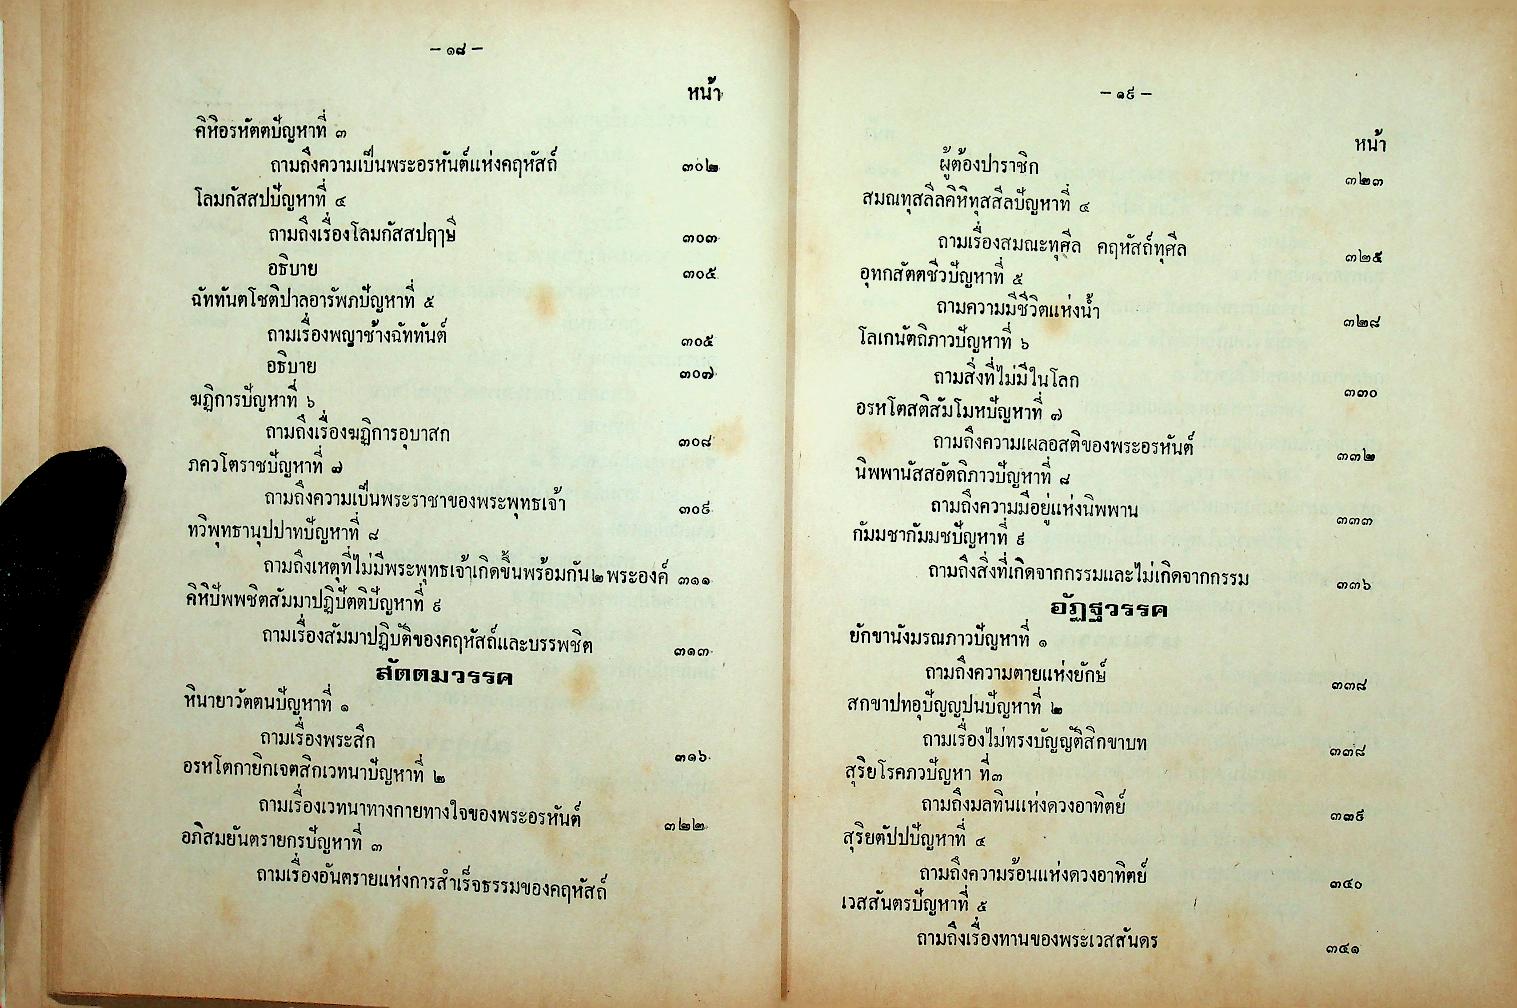 – ๑๘ –
หน้า
คิหิอรหัตตปัญหาที่ ๓
ถามถึงความเป็นพระอรหันต์แห่งคฤหัสถ์ ๓๐๒
โลมกัสสปปัญหาที่ ๔
ถามถึงเรื่องโลมกัสสปฤๅษี ๓๐๓
อธิบาย ๓๐๕
ฉัททันตโชติปาลอารัพภปัญหาที่ ๕
ถามเรื่องพญาช้างฉัททันต์ ๓๐๕
อธิบาย ๓๐๗
ฆฏิการปัญหาที่ ๖
ถามถึงเรื่องฆฏิการอุบาสก ๓๐๘
ภควโตราชปัญหาที่ ๗
ถามถึงความเป็นพระราชาของพระพุทธเจ้า ๓๐๙
ทวิพุทธานุปปาทปัญหาที่ ๘
ถามถึงเหตุที่ไม่มีพระพุทธเจ้าเกิดขึ้นพร้อมกัน๒พระองค์ ๓๑๑
คิหิปัพพชิตสัมมาปฏิปัตติปัญหาที่ ๙
ถามเรื่องสัมมาปฏิบัติของคฤหัสถ์และบรรพชิต ๓๑๓
สัตตมวรรค
หินายาวัตตนปัญหาที่ ๑
ถามเรื่องพระสึก ๓๑๖
อรหโตกายิกเจตสิกเวทนาปัญหาที่ ๒
ถามเรื่องเวทนาทางกายทางใจของพระอรหันต์ ๓๒๒
อภิสมยันตรายกรปัญหาที่ ๓
ถามเรื่องอันตรายแห่งการสำเร็จธรรมของคฤหัสถ์
– ๑๙ –
หน้า
ผู้ต้องปาราชิก ๓๒๓
สมณทุสลีลคิหิทุสสีลปัญหาที่ ๔
ถามเรื่องสมณะทุศีล คฤหัสถ์ทุศีล ๓๒๕
อุทกสัตตชีวปัญหาที่ ๕
ถามความมีชีวิตแห่งน้ำ ๓๒๘
โลเกนัตถิภาวปัญหาที่ ๖
ถามสิ่งที่ไม่มีในโลก ๓๓๐
อรหโตสติสัมโมหปัญหาที่ ๗
ถามถึงความเผลอสติของพระอรหันต์ ๓๓๒
นิพพานัสสอัตถิภาวปัญหาที่ ๘
ถามถึงความมีอยู่แห่งนิพพาน ๓๓๓
กัมมชากัมมชปัญหาที่ ๙
ถามถึงสิ่งที่เกิดจากกรรมและไม่เกิดจากกรรม ๓๓๖
อัฏฐวรรค
ยักขานังมรณภาวปัญหาที่ ๑
ถามถึงความตายแห่งยักษ์ ๓๓๘
สกขาปทอุปัญญปนปัญหาที่ ๒
ถามเรื่องไม่ทรงบัญญัติสิกขาบท ๓๓๘
สุริยโรคภวปัญหา ที่๓
ถามถึงมลทินแห่งดวงอาทิตย์ ๓๓๙
สุริยตัปปปัญหาที่ ๔
ถามถึงความร้อนแห่งดวงอาทิตย์ ๓๔๐
เวสสันตรปัญหาที่ ๕
ถามถึงเรื่องทานของพระเวสสันดร ๓๔๑